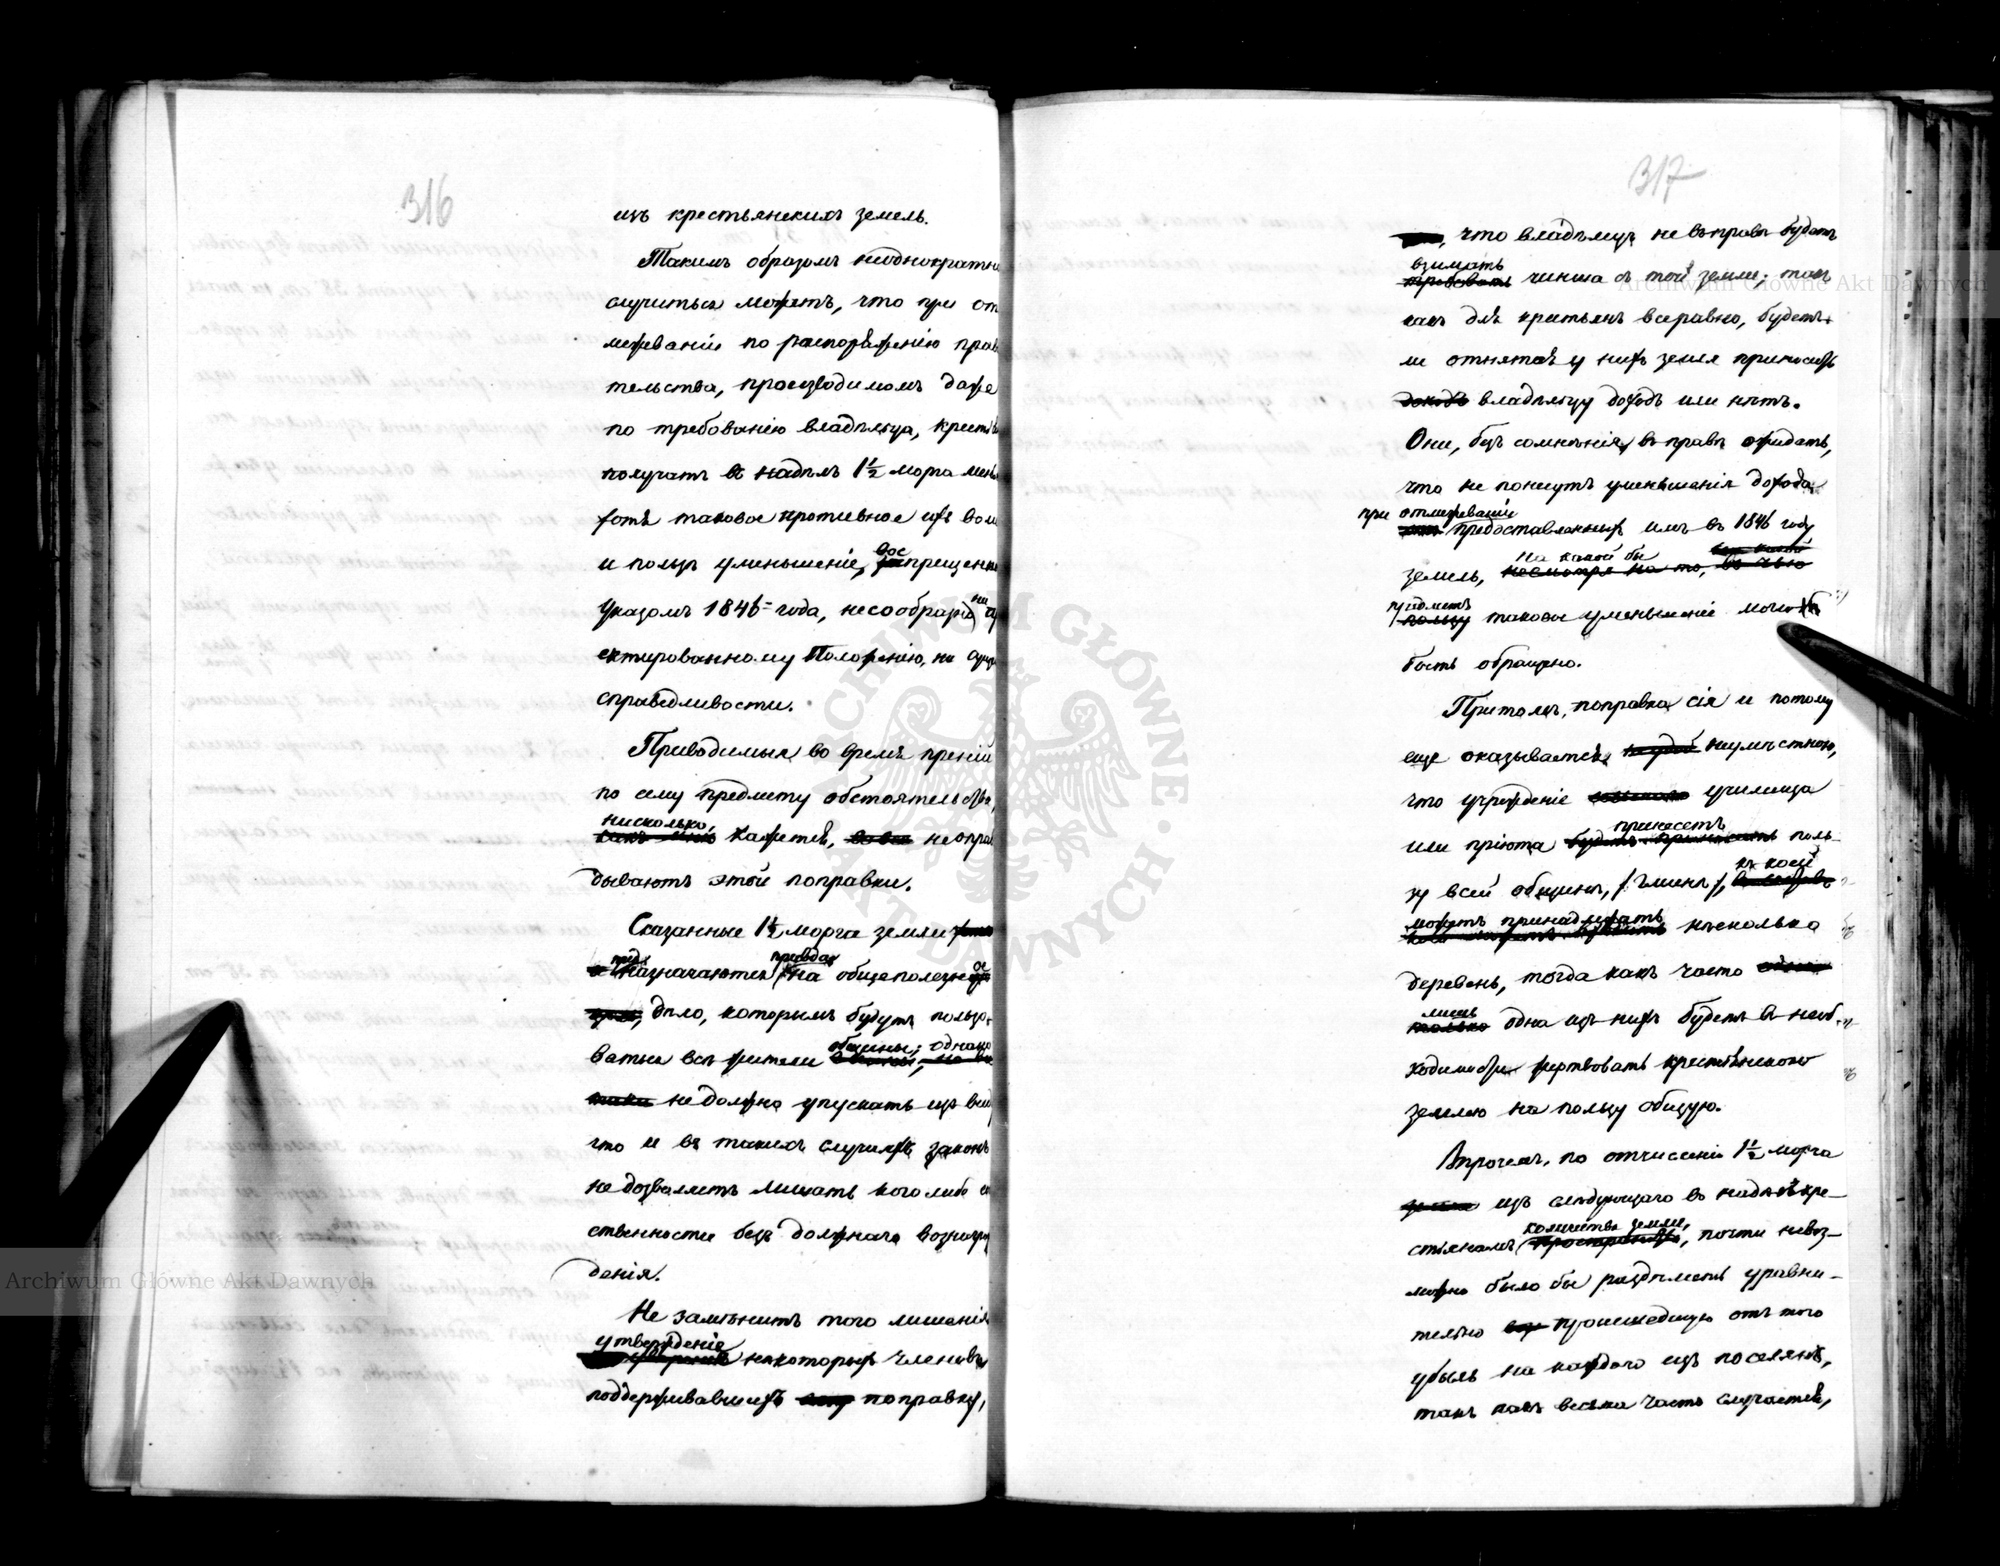 316
изъ крестьянскихъ земель.
Такимъ образомъ неоднократно
случиться можетъ, что при от
межеваніи по распоряженію прав
тельства, производимомъ даже
по требованію владѣльца, крестья
получатъ въ надѣлъ 1½ морга мень
хотя таковое противное ихъ воли
и пользѣ уменьшеніе, воспрещенно
Указомъ 1846 года, несообразно ни
ектированному Положенію, ни
справедливости.
Приводимыя во время преній
по сему предмету обстоятельства,
нисколько,
кажется, не оправ
дываютъ этой поправки.
Сказанные 1½ морга земли
пред правда
назначаются на общеполезное
дѣло, которымъ будутъ пользо-
общины; однако
ваться всѣ жители
не должно упускать изъ виду
что и въ такихъ случаяхъ законъ
не дозволяетъ лишать кого либо
ственности безъ должнаго вознагра
денія.
Не замѣнитъ того лишенія
утвержденіе
некоторыхъ членовъ,
поддерживавшихъ поправку,
317
что владѣлецъ не въ правѣ будетъ
взимать
чинша съ той земли; такъ
какъ для крестьянъ всеравно, будетъ
ли отнятая у нихъ земля приносить
владѣльцу доходъ или нѣтъ.
Они, безъ сомнѣнія, въ правѣ ожидать,
что не понесутъ уменьшенія дохода
при отмежеваніи
предоставленныхъ имъ въ 1846 году
на какой бы
земель,
предметъ
таковое уменьшеніе
быть обращено.
Притомъ, поправка сія и потому
еще оказывается неумѣстною,
что учрежденіе училища
принесетъ
или пріюта поль-
къ коей
зу всей общинѣ, /гминѣ/,
можетъ принадлежать
нѣсколько
деревень, тогда какъ часто
лишь
одна изъ нихъ будетъ въ необ-
ходимости жертвовать крестьянскою
землею на пользу общую.
Впрочемъ, по отчисленіи 1½ морга
изъ слѣдующаго въ надѣлъ кре-
количества земли,
стьянамъ, почти невоз-
можно было бы раздѣлить уравни-
тельно происшедшую отъ того
убыль на каждаго изъ поселянъ,
такъ какъ весьма часто случается,
Archiwum Główne Akt Dawnych
Archiwum Główne Akt Dawnych
ARCHIWUM GŁÓWNE AKT DAWNYCH